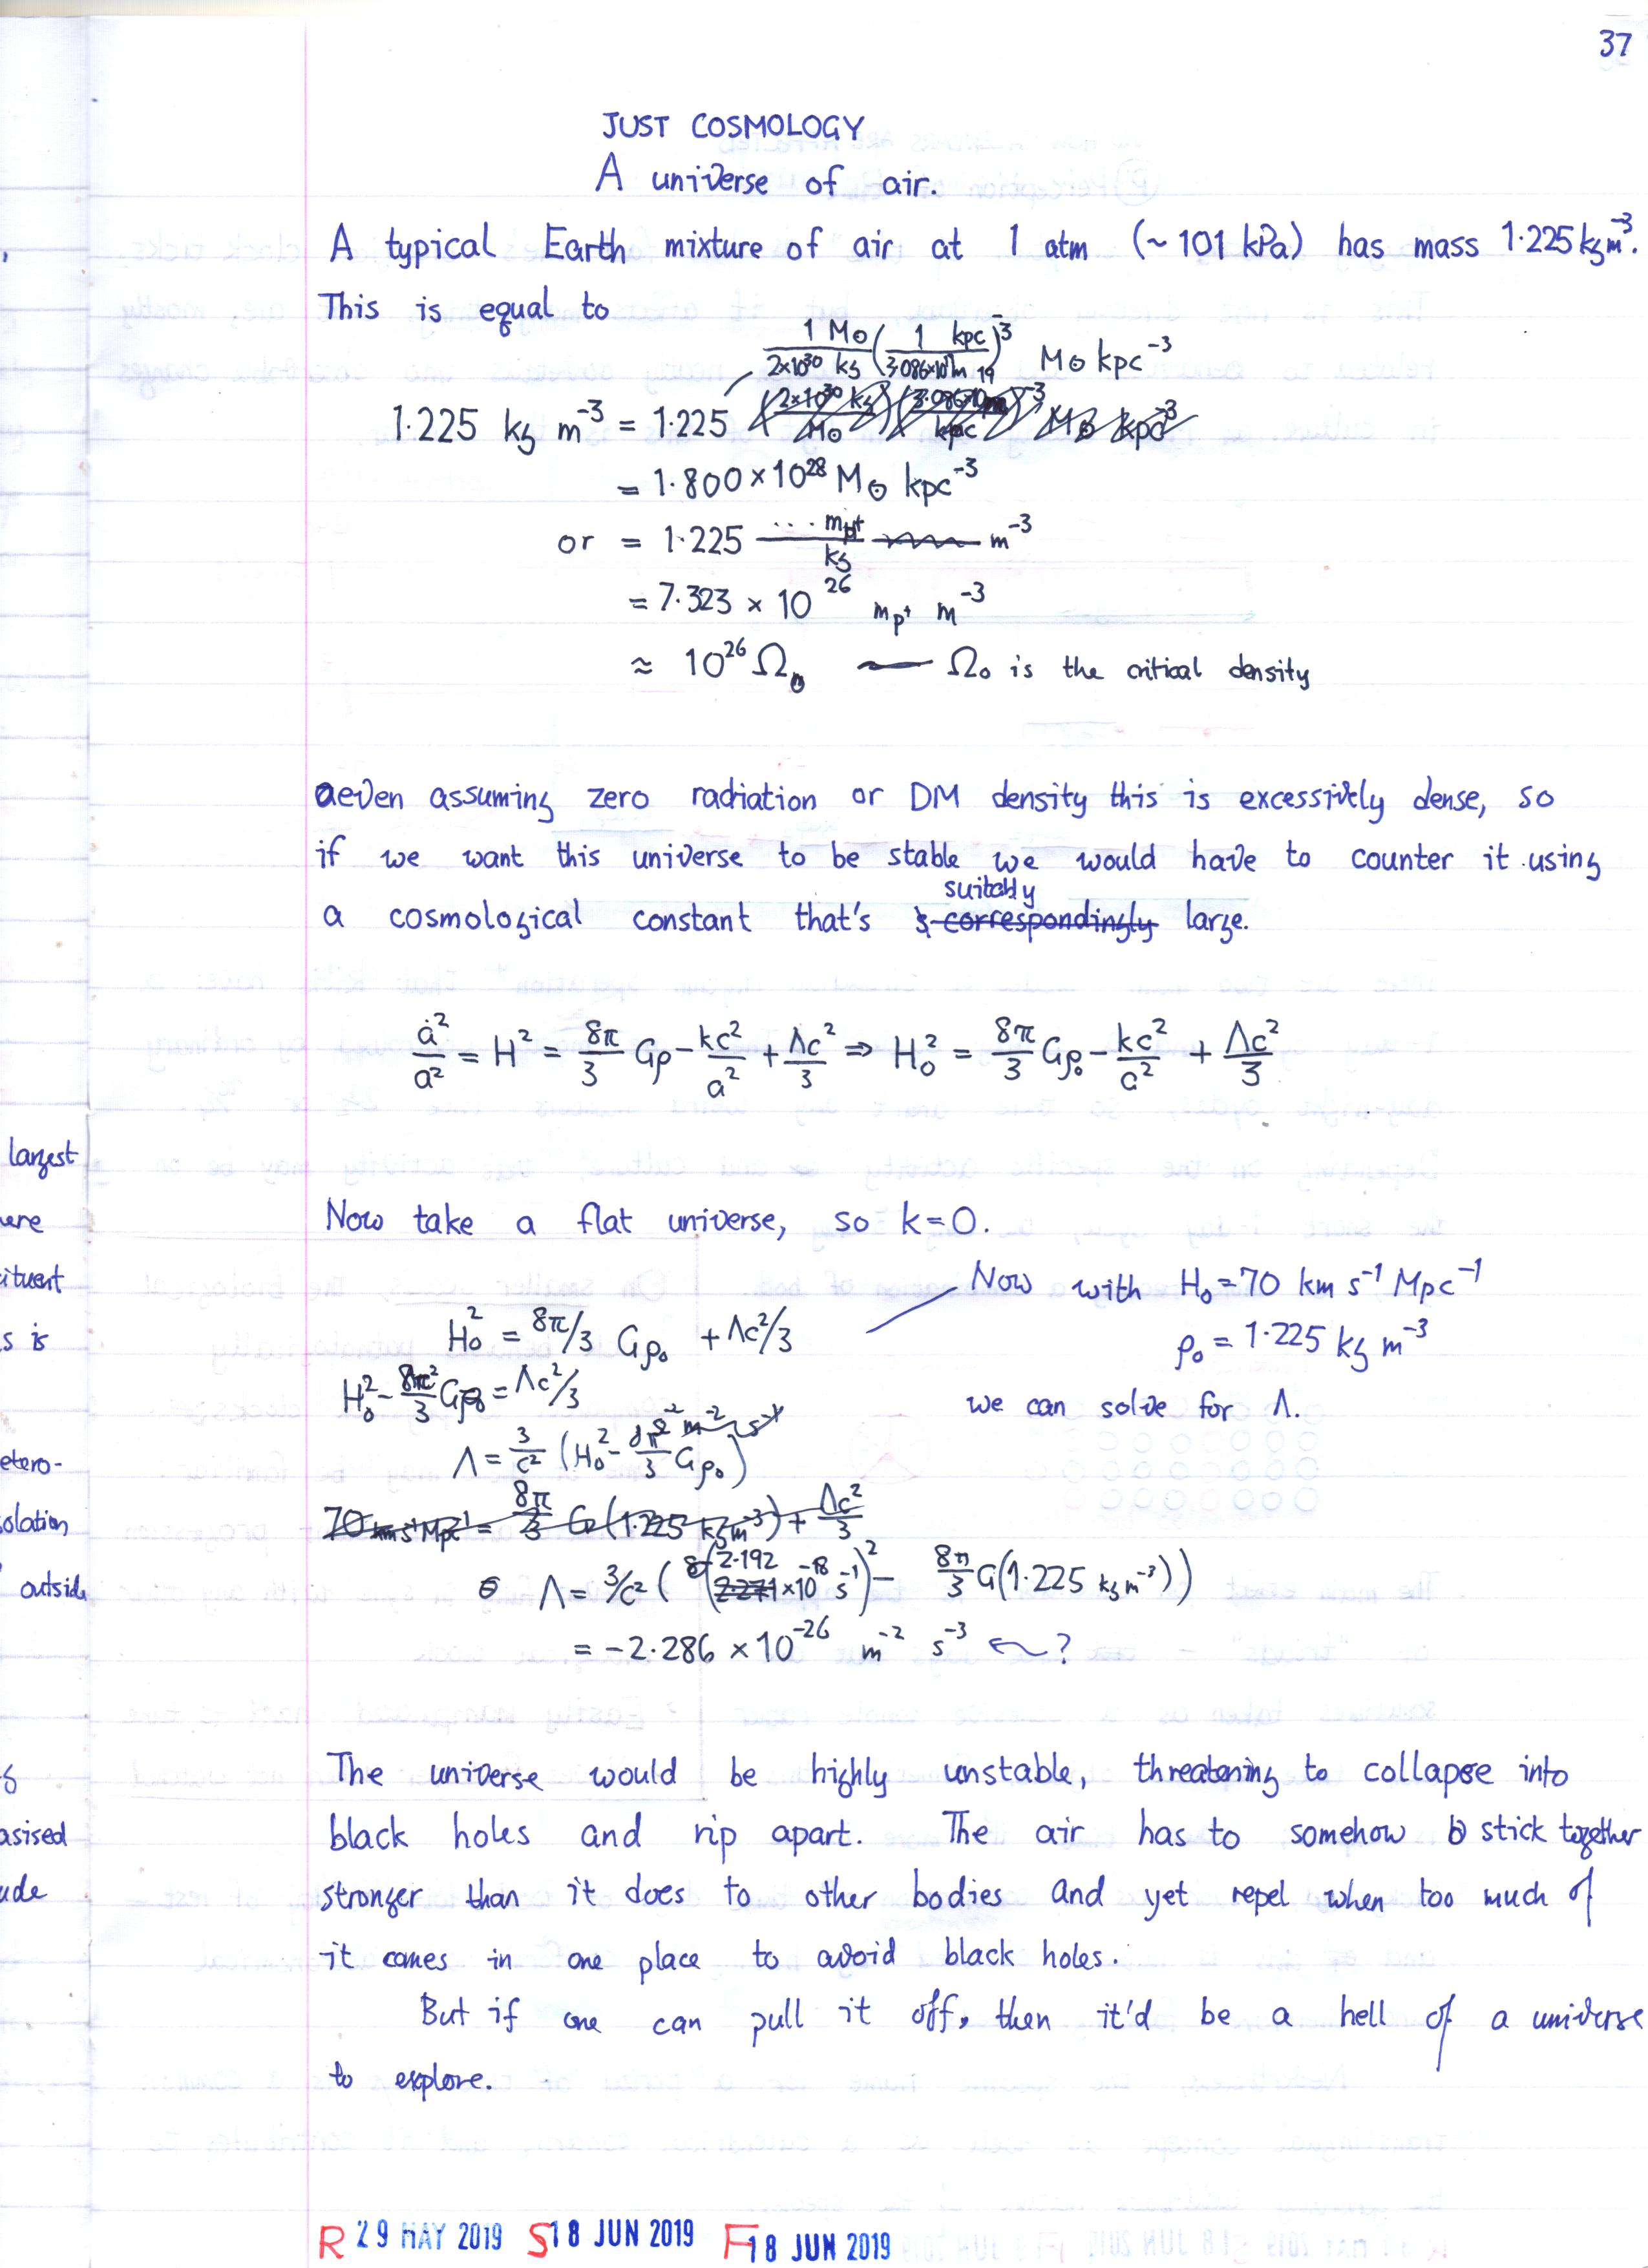 37
JUST COSMOLOGY
A universe of air.
A typical Earth mixture of air at 1 atm (~101 kPa) has mass 1.225 kg m⁻³.
This is equal to
1 M⊙ / 2×10³⁰ kg (1 kpc / 3.086×10¹⁹ m)⁻³ M⊙ kpc⁻³
1.225 kg m⁻³ = 1.225
= 1.800 × 10²⁸ M⊙ kpc⁻³
or = 1.225 ... mp+ / kg m⁻³
= 7.323 × 10²⁶ mp+ m⁻³
≈ 10²⁶ Ω₀ — Ω₀ is the critical density
even assuming zero radiation or DM density this is excessively dense, so
if we want this universe to be stable we would have to counter it using
a cosmological constant that's suitably correspondingly large.
ȧ²/a² = H² = 8π/3 Gρ - kc²/a² + Λc²/3 ⇒ H₀² = 8π/3 Gρ₀ - kc²/a² + Λc²/3
Now take a flat universe, so k=0.
Now with H₀=70 km s⁻¹ Mpc⁻¹
H₀² = 8π/3 Gρ₀ + Λc²/3
ρ₀ = 1.225 kg m⁻³
H₀² - 8π/3 Gρ₀ = Λc²/3
we can solve for Λ.
Λ = 3/c² (H₀² - 8π/3 Gρ₀)
70 km s⁻¹ Mpc⁻¹ = 8π/3 G(1.225 kg m⁻³) + Λc²/3
Λ = 3/c² ((2.192 ×10⁻¹⁸ s⁻¹)² - 8π/3 G(1.225 kg m⁻³))
= -2.286 × 10⁻²⁶ m⁻² s⁻³ ← ?
The universe would be highly unstable, threatening to collapse into
black holes and rip apart. The air has to somehow stick together
stronger than it does to other bodies and yet repel when too much of
it comes in one place to avoid black holes.
But if one can pull it off, then it'd be a hell of a universe
to explore.
R 29 MAY 2019 S 18 JUN 2019 F 18 JUN 2019
largest
ere
ituent
s is
etero-
olation
outside
asised
ude